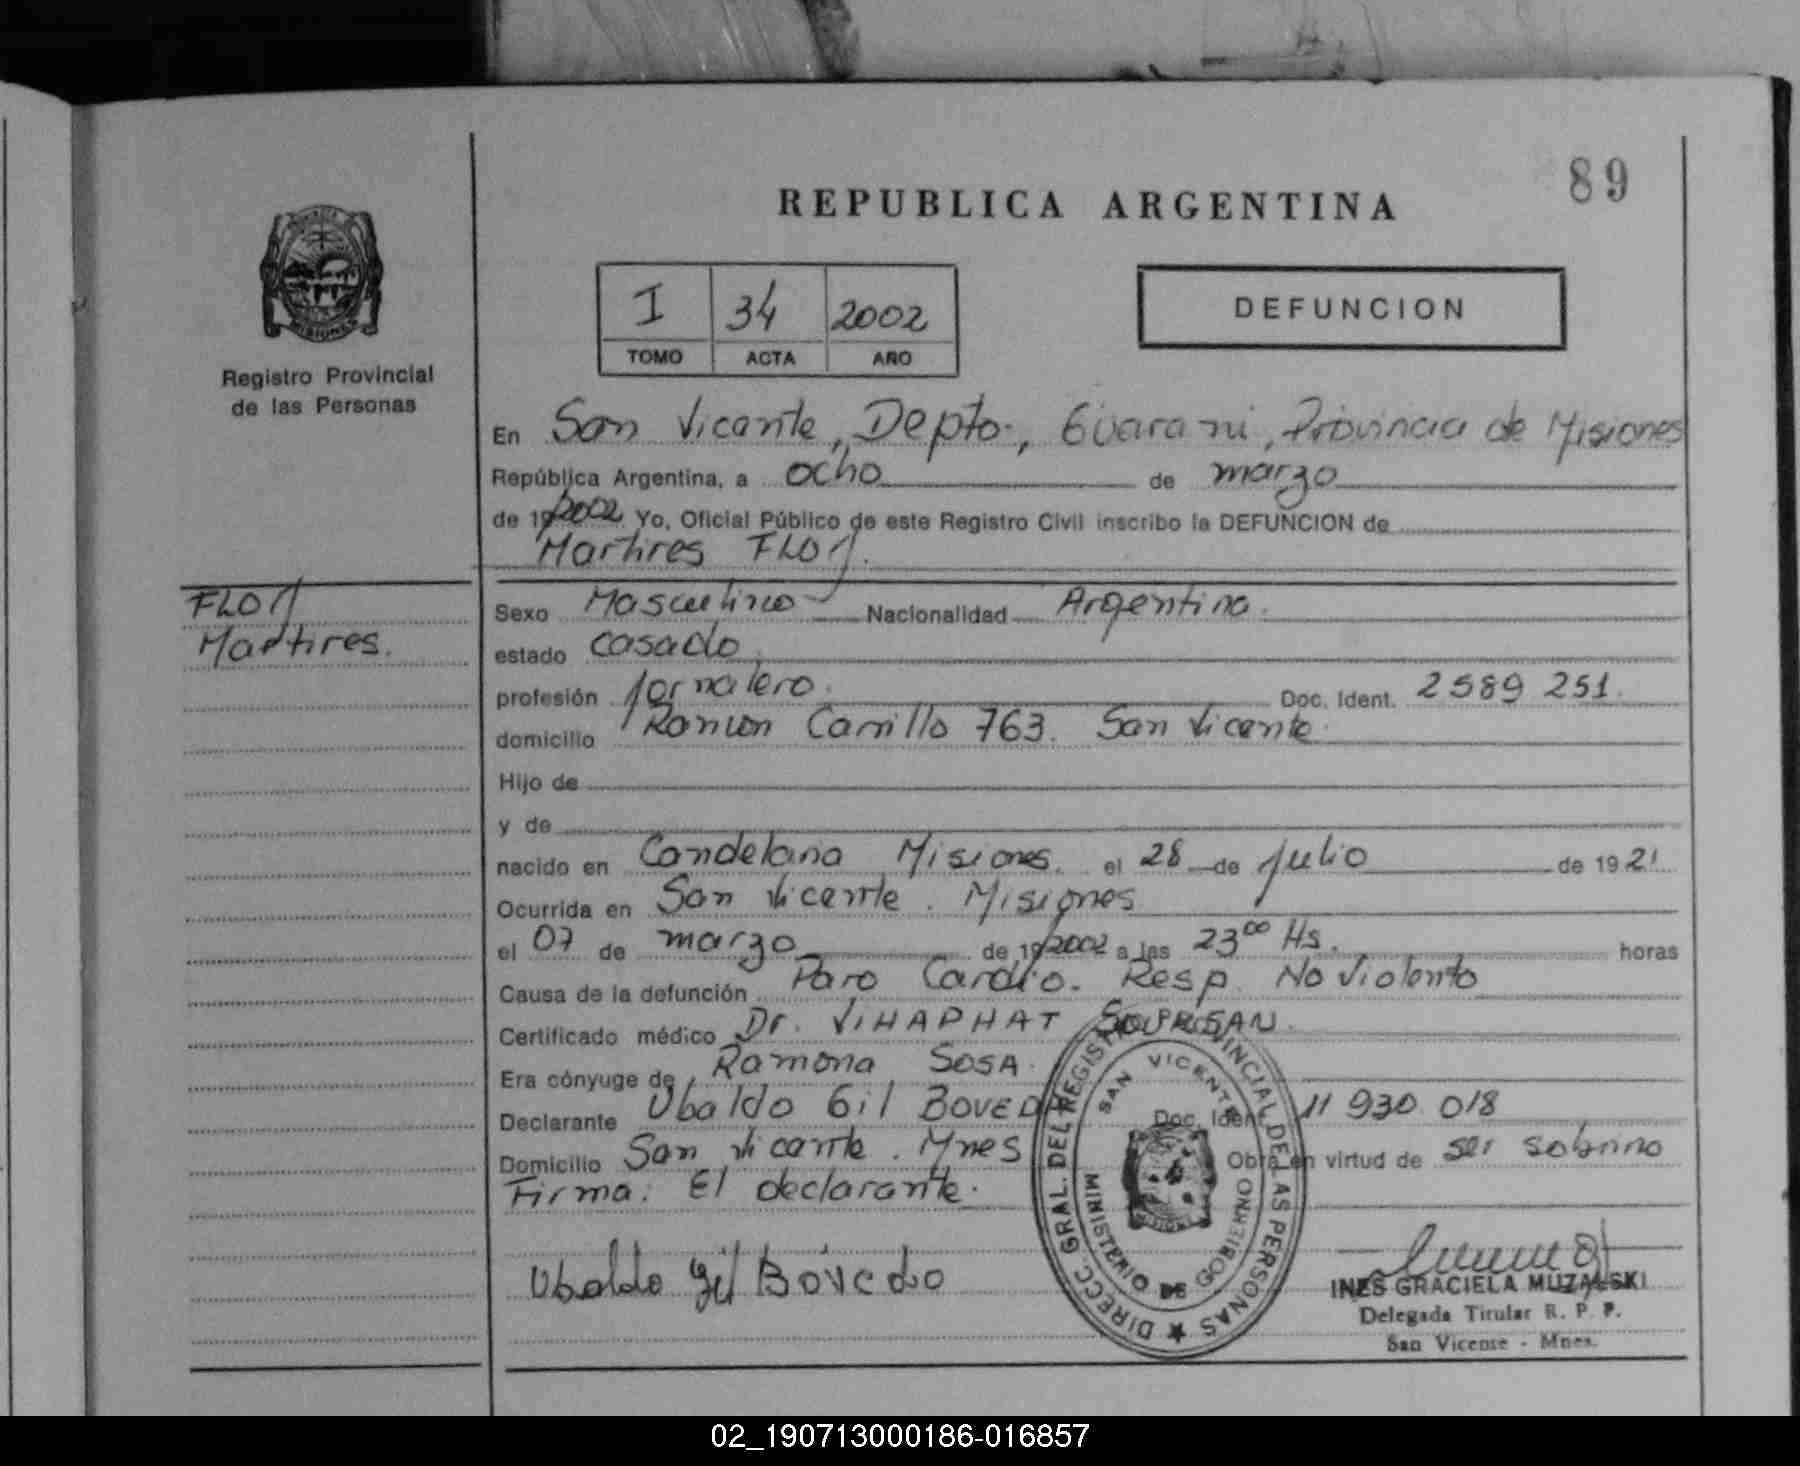 89
REPUBLICA ARGENTINA
I 34 2002
TOMO ACTA AÑO
DEFUNCION
MISIONES
Registro Provincial
de las Personas
En San Vicente, Depto., Guarani, Provincia de Misiones
República Argentina, a ocho de marzo
de 19/2002 Yo, Oficial Público de este Registro Civil inscribo la DEFUNCION de
Martires FLOR
FLOR
Martires.
Sexo Masculino Nacionalidad Argentina.
estado casado
profesión Jornalero. Doc. Ident. 2589 251.
domicilio Ramon Carrillo 763. San Vicente.
Hijo de
y de
nacido en Candelaria Misiones. el 28 de julio de 1921
Ocurrida en San Vicente. Misiones
el 07 de marzo de 19/2002 a las 23ºº Hs. horas
Causa de la defunción Paro Cardio. Resp. No Violento
Certificado médico Dr. VIHAPHAT
Era cónyuge de Ramona SOSA.
Declarante Ubaldo Gil BOVEDA Doc. Ident. 11 930 018
Domicilio San Vicente. Mnes Obra en virtud de ser sobrino
Firma: El declarante.
Ubaldo Gil Bovedo
DIRECC. GRAL. DEL REGISTRO PROVINCIAL DE LAS PERSONAS
SAN VICENTE
MINISTERIO DE GOBIERNO
INES GRACIELA MUZALSKI
Delegada Titular R. P. P.
San Vicente - Mnes.
02_190713000186-016857